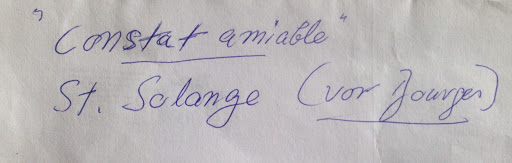 "Constat amiable"
St. Solange (vor Bourges)